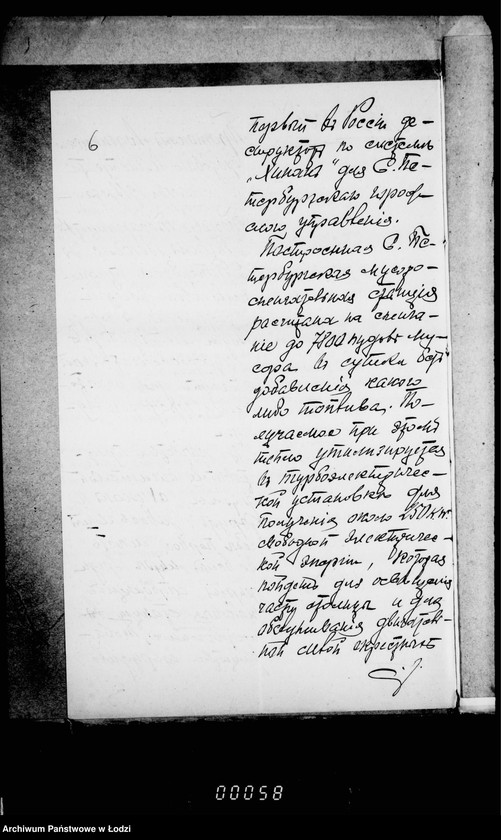 6
первый въ Россіи де-
структоръ по системѣ
„Хинана" для С. Пе-
тербургскаго город-
ского управленія.
Построенная С. Пе-
тербургская мусоро-
сжигательная станція
расчитана на сжига-
ніе до 7800 пудовъ му-
сора въ сутки безъ
добавленія какого
либо топлива. По-
лучаемое при этомъ
тепло утилизируется
въ турбоэлектричес-
кой установкѣ для
полученія около 250 кw.
свободной электричес-
кой энергіи, которая
пойдетъ для освѣщенія
части столицы и для
обслуживанія
00058
Archiwum Państwowe w Łodzi